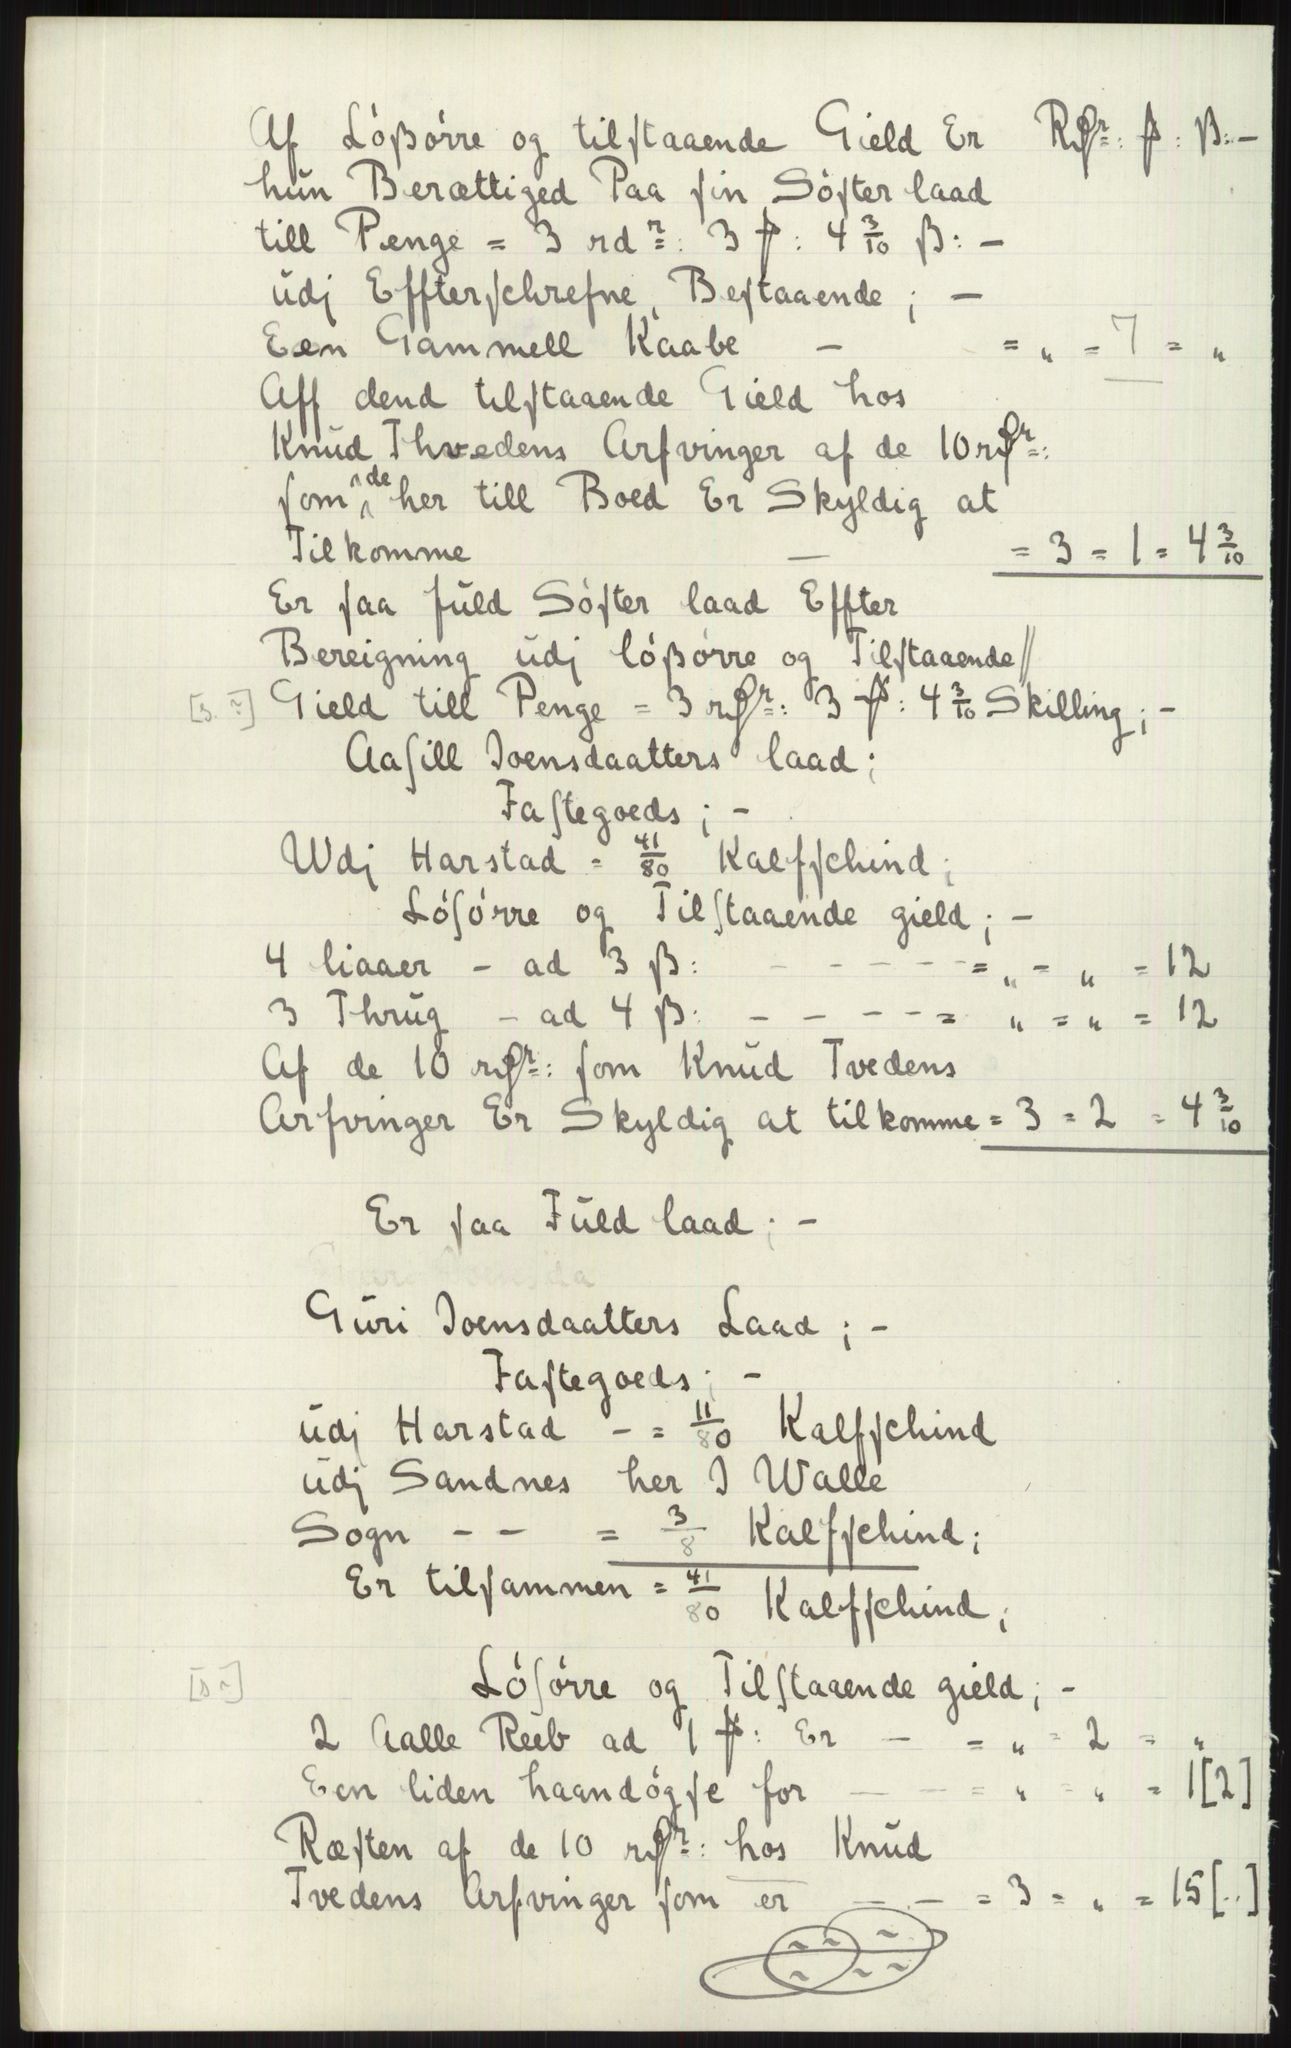 Af Lößørre og tilstaaende Gield Er Rdr: ß: ß:-
hun Berættiged Paa sin Søster laad
till Penge = 3 rdr: 3 ß: 4 3/10 ß: -
udj Effterschrefne, Bestaaende; -
Een Gammell Kaabe - = „ = 7 = „
Aff dend tilstaaende Gield hos
Knud Thvedens Arfvinger af de 10 rdr:
som de her till Boed Er Skyldig at
Tilkomme - = 3 = 1 = 4 3/10
Er saa fuld Søster laad Effter
Bereigning udj lößørre og Tilstaaende//
Gield till Penge = 3 rdr: 3 ß: 4 3/10 Skilling; -
Aasill Joensdaatters laad;
Fastegoeds; -
Wdj Harstad = 41/80 Kalfschind;
Løsørre og Tilstaaende gield; -
4 liaaer - ad 3 ß: - - - - - = „ = „ = 12
3 Thrug - ad 4 ß: - - - - = „ = „ = 12
Af de 10 rdr: som Knud Tvedens
Arfvinger Er Skyldig at tilkomme = 3 = 2 = 4 3/10
Er saa Fuld laad; -
Guri Joensdaatters Laad; -
Fastegoeds; -
udj Harstad - = 11/80 Kalfschind
udj Sandnes her J Walle
Sogn - - = 3/8 Kalfschind;
Er tilsammen = 41/80 Kalfschind;
Løsørre og Tilstaaende gield; -
2 Aalle Reeb ad 1 ß: Er - = „ = 2 = „
Een liden haandøgse for - - = „ = „ = 1[2]
Ræsten af de 10 rdr: hos Knud
Tvedens Arfvinger som er - - = 3 = „ = 15[..]